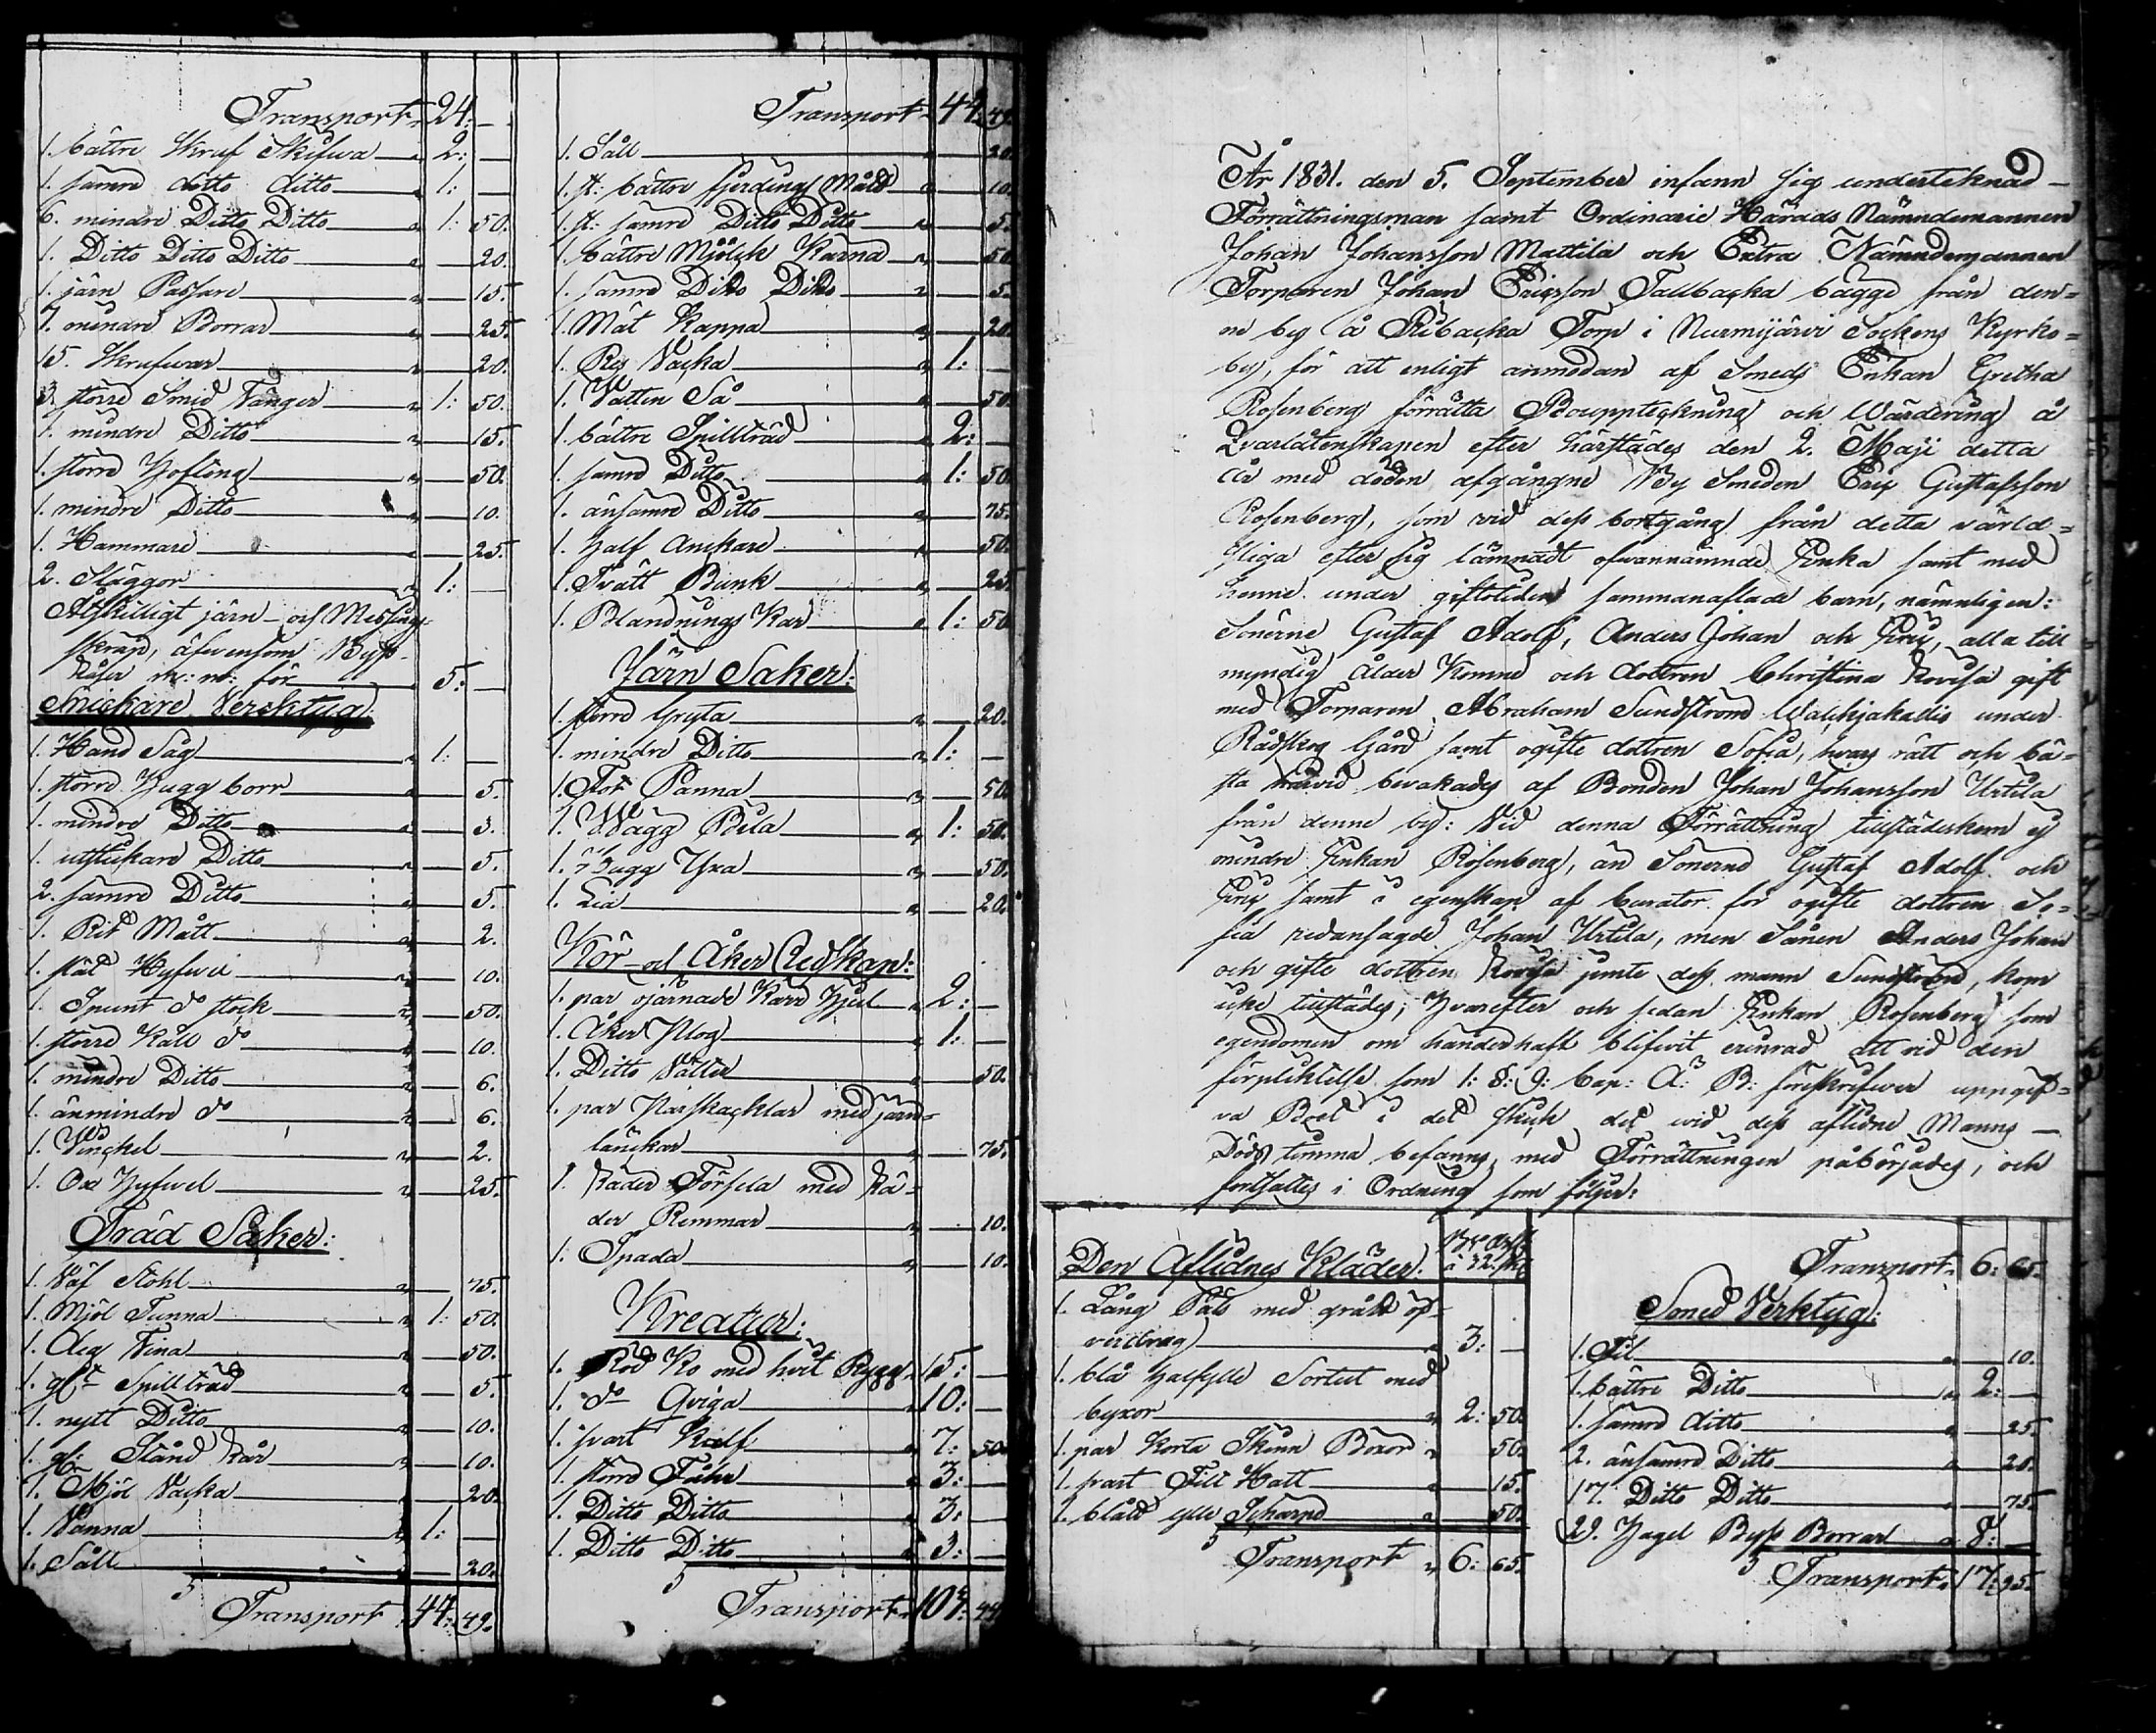 Transport 24: —
1. bättre Skruf Skifwa „ 2: —
1. sämre ditto ditto „ 1: —
6. mindre Ditto Ditto „ 1: 50.
1. Ditto Ditto Ditto „ — 20.
1. järn Passare „ — 15.
7. mindre Borrar „ — 25.
15. Skrufwar „ — 20.
3. större Smid Tänger „ 1: 50.
1. mindre Ditto „ — 15.
1. större Hofting „ — 50.
1. mindre Ditto „ — 10.
1. Hammare „ — 25.
2. Släggor „ 1: —
Åtskilligt järn- och Messings
skrap, äfwensom Byss-
för 5: —
Snickare Vercktyg
1. Hand Såg „ 1: —
1. större Hugg borr „ — 5.
1. mindre Ditto „ — 3.
1. Ditto „ — 5.
2. sämre Ditto „ — 5.
1. Rit Mått „ — 2.
1. Hyfwel „ — 10.
1. Spunt do stock „ — 50.
1. större Käll do „ — 10.
1. mindre Ditto „ — 6.
1. änmindre do „ — 6.
1. Vinckel „ — 2.
1. Ox Hyfwel „ — 25.
Träd Saker:
1. Väf Stohl „ — 75.
1. Mjöl Tunna „ 1: 50.
1. Deg Tina „ — 50.
1. glt Spillträd „ — 5.
1. nytt Ditto „ — 10.
1. glt Stånd kar „ — 10.
1. Mjöl Vacka „ — 20.
1. Vanna „ 1: —
1. Såll „ — 20.
Transport 44: 49.
Transport 44: 49.
1. Såll „ — 20.
1. st: bättre fjerdings Mått „ — 10.
1. st: sämre Ditto Ditto „ — 5.
1. bättre Mjölck Kärna „ — 50.
1. sämre Ditto Ditto „ — 5.
1. Måt Kappa „ — 20.
1. Vacka „ 1: —
1. Vatten Så „ — 50.
1. bättre Spillträd „ 2: —
1. sämre Ditto „ 1: 50.
1. änsämre Ditto „ — 75.
1. half Anckare „ — 50.
1. Tvätt Bunk „ — 25
1. Blandnings Kar „ 1: 50
Järn Saker:
1. större Gryta „ — 20.
1. mindre Ditto „ 1: —
1. Fot Panna „ — 50.
1. Vägg Bila „ 1: 50.
1. Hugg Yxa „ — 50.
1. Lia „ — 20.
Kör- och Åker Redskap:
1. par ojärnade Kärr Hjul „ 2: —
1. Åker Plog „ 1: —
1. Ditto Vält „ — 50.
1. par med järn-
länckar „ — 75.
1. Räder Förscla med Rä-
der Remmar „ — 10.
1. Spada „ — 10.
Kreatur:
1. Röd Ko med hvit Rygg „ 15: —
1. do Qviga „ 10: —
1. svart Kalf „ 7: 50.
1. större Fåhr „ 3: —
1. Ditto Ditto „ 3: —
1. Ditto Ditto „ 3: —
Transport 107: 44
År 1831. den 5. September infann sig undertecknad
Förrättningsman samt Ordinarie Härads Nämndemannen
Johan Johansson Mattila och Extra Nämndemannen
Torparen Johan Ericsson Tallbacka bägge från den-
ne by å Ribacka Torp i Nurmijärvi Sockens Kyrko-
by, för att enligt anmodan af Smeds Enkan Gretha
Rosenberg förrätta Bouppteckning och Wärdering å
Qvarlåtenskapen efter härstädes den 2. Maji detta
år med döden afgångne By Smeden Eric Gustafsson
Rosenberg, som vid dess bortgång från detta värld-
sliga efter sig lämnadt ofwannämnde Enka samt med
henne under giftotiden sammanaflade barn, nämnligen:
Sönerne Gustaf Adolf, Anders Johan och Eric, alla till
myndig Ålder Komne och dottren Christina Lovisa gift
med Torparen Abraham Sundström Walckjakallio under
Rådskog Gård samt ogifte dottren Sofia, hvars rätt och bä-
sta härvid bevakades af Bonden Johan Johansson Urtila
från denne by: Vid denna Förrättning tillstädeskom ej
mindre Enkan Rosenberg, än Sönerne Gustaf Adolf och
Eric samt i egenskap af Curator för ogifte dottren So-
fia redansagde Johan Urtila, men Sånen Anders Johan
och gifte dottren Lovisa jemte dess mann Sundström, kom
icke tillstädes; Hvarefter och sedan Enkan Rosenberg som
egendomen om händerhaft blifwit erinrad att vid den
förplicktelse som 1: §: 9: Cap: Ä: B: föreskrifwer uppgif-
va Boet i det skick det wid dess aflidne Manns
Döds timma befanns, med Förrättningen påbörjades, och
fortsattes i Ordning som följer:
Den Aflidnes Kläder:
1. Lång Päls med grått öf-
verdrag „ 3: —
1. blå halfylle Sortut med
byxor „ 2: 50.
1. par korta Skinn Böxor „ 50.
1. svart Filt Hatt „ 15.
1. blått ylle Schärp „ 50.
Transport „ 6: 65.
Transport „ 6: 65.
Smed Verktyg:
1. Fil „ — 10.
1. bättre Ditto „ 2: —
1. sämre ditto „ — 25.
2. änsämre Ditto „ — 20.
17. Ditto Ditto „ — 75.
29. Hagel Byss Borrar „ 8: —
Transport „ 17: 95.